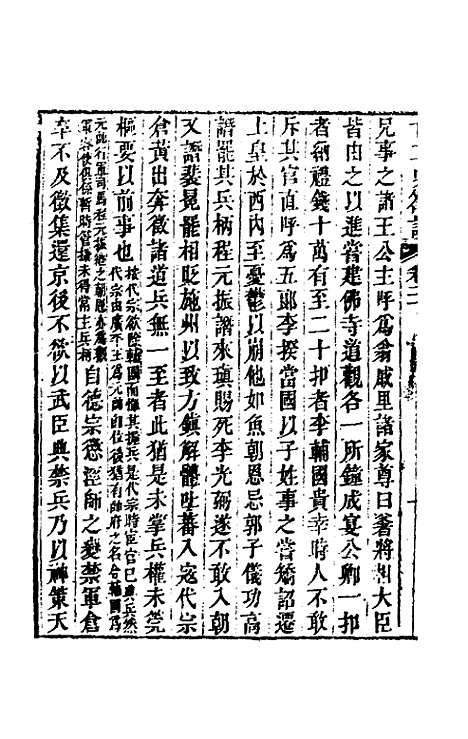 兄事之諸王公主呼為翁戚里諸家尊曰爹將相大臣
皆由之以進嘗建佛寺道觀各一所鐘成宴公卿一扣
者納禮錢十萬有至二十扣者李輔國貴幸時人不敢
斥其官直呼為五郎李揆當國以子姓事之嘗矯詔遷
上皇於西內至憂鬱以崩他如魚朝恩忌郭子儀功高
譖罷其兵柄程元振譖來瑱賜死李光弼遂不敢入朝
又譖裴冕罷相貶施州以致方鎮解體吐蕃入寇代宗
倉黃出奔徵諸道兵無一至者此猶是未掌兵權未筦
樞要以前事也按代宗欲除輔國而憚其握兵是代宗時宦官已典兵然
代宗由廣平王為元帥自位後猶有帥府之名令輔國為
元帥行軍司馬程元振繼之朝恩亦為觀
軍容使俱係暫時管攝未得常主兵柄自德宗懲涇師之變禁軍倉
卒不及徵集還京後不欲以武臣典禁兵乃以神策天